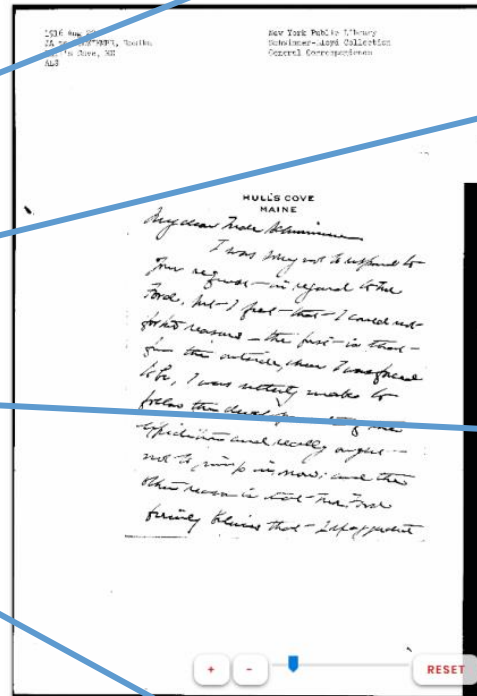 1916 Aug
New York Public Library
Schwimmer-Lloyd Collection
General Correspondence
ALS
HULL'S COVE
MAINE
My dear Mme Schwimmer
I was sorry not to respond to
your request in regard to Mr
Ford, but I feel that I could not
for two reasons the first is that
from the outside, when I was forced
to be, I was utterly unable to
follow the development of the
expedition and really ought
not to jump in, now; and the
other reason is that Mr. Ford
firmly believes that I
+
-
RESET